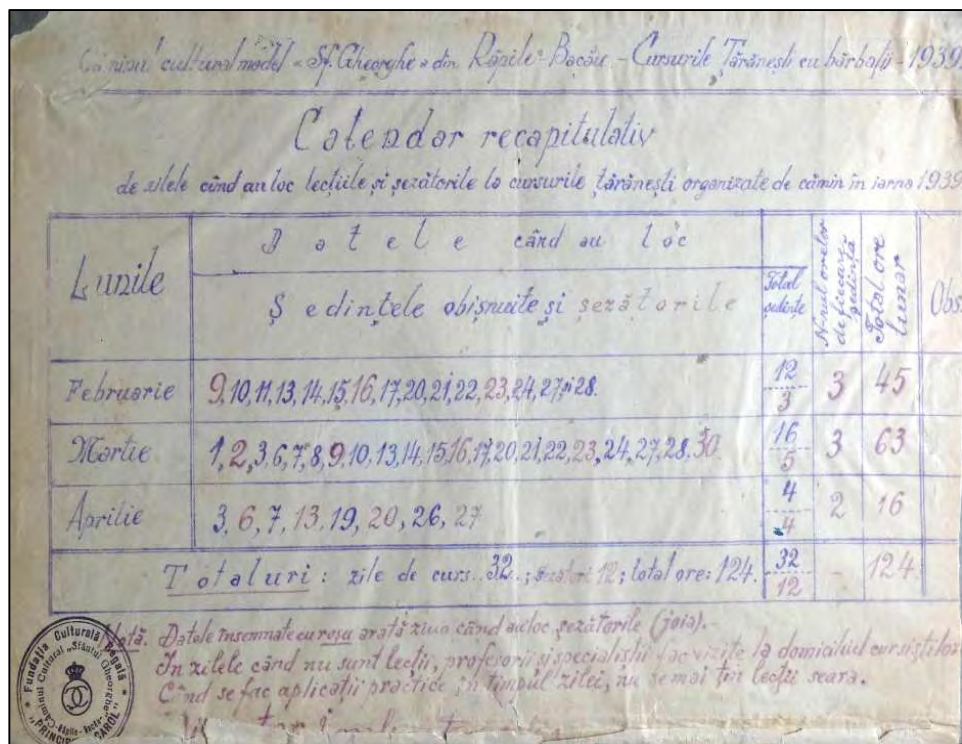 Căminul cultural model «Sf. Gheorghe» din Răpile-Bacău - Cursurile Țărănești cu bărbații - 1939
Calendar recapitulativ
de zilele când au loc lecțiile și șezătorile la cursurile țărănești organizate de cămin în iarna 1939
Lunile
Datele când au loc
Ședintele obișnuite și șezătorile
Total ședințe
N-rul orelor de fiecare ședință
Total ore lunar
Obs.
Februarie 9,10,11,13,14,15,16,17,20,21,22,23,24,27 și 28. 12 3 3 45
Martie 1,2,3,6,7,8,9,10,13,14,15,16,17,20,21,22,23,24,27,28,30. 16 5 3 63
Aprilie 3,6,7,13,19,20,26,27 4 4 2 16
Totaluri: zile de curs..32..; șezători 12; total ore: 124. 32 12 - 124.
Notă. Datele însemnate cu roșu arată ziua când au loc șezătorile (joia).-
In zilele când nu sunt lecții, profesorii și specialiștii fac vizite la domiciliul cursiștilor
Când se fac aplicații practice în timpul zilei, nu se mai țin lecții seara.
Fundația Culturală Regală
"PRINCIPELE CAROL"
Căminul Cultural „Sfântul Gheorghe"